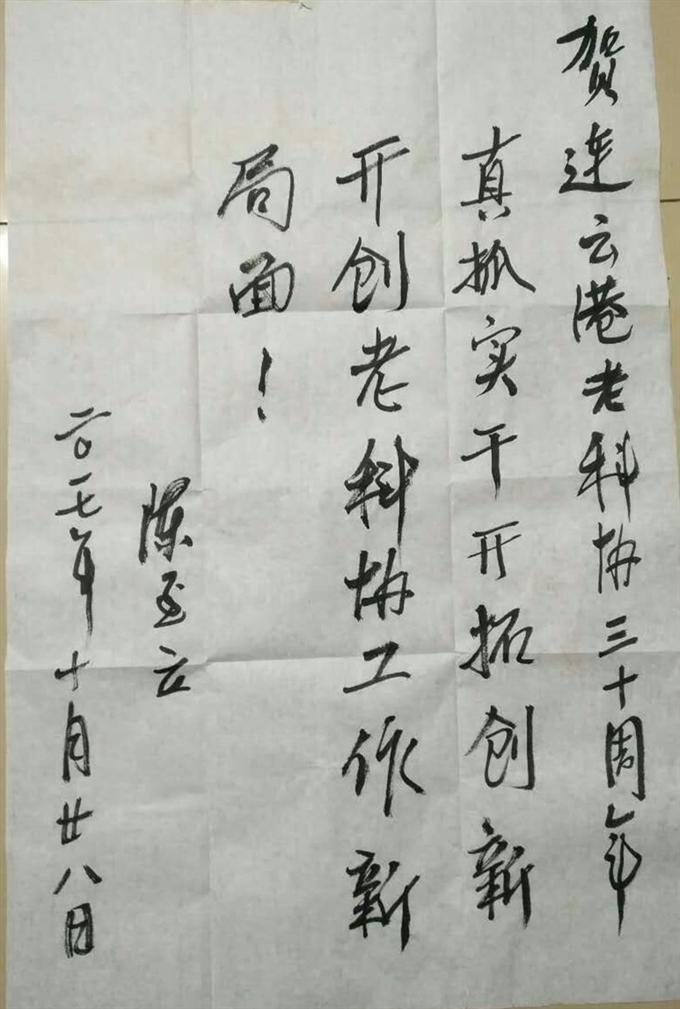 贺连云港老科协三十周年
真抓实干开拓创新
开创老科协工作新
局面！
陈至立
二〇一七年十月廿八日